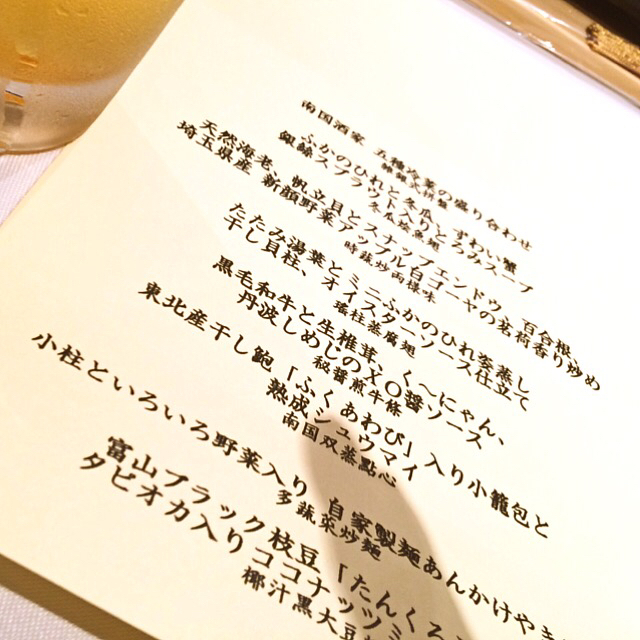 南国酒家 五種冷菜の盛り合わせ
ふかのひれと冬瓜、ずわい蟹
銀錦スプラウト入りとろみスープ
冬瓜烩魚翅
天然海老、帆立貝とスナップエンドウ、百合根、
埼玉県産 新顔野菜アップル白ゴーヤの茗荷香り炒め
時蔬炒両様味
たたみ湯葉とミニふかのひれ釜蒸し
干し貝柱、オイスターソース仕立て
瑤柱蒸腐翅
黒毛和牛と生椎茸、く~にゃん、
丹波しめじのXO醤ソース
秘醤煎牛條
東北産干し鮑「ふくあわび」入り小籠包と
熟成シュウマイ
南国双蒸點心
小柱といろいろ野菜入り 自家製麺あんかけやき
多蔬菜炒麺
富山ブラック枝豆「たんくろ
タピオカ入りココナッツミ
椰汁黒大豆